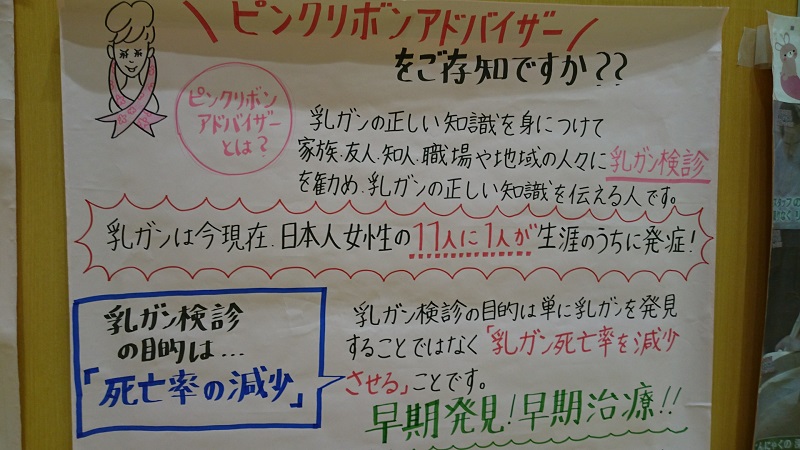 ピンクリボンアドバイザー
をご存知ですか??
ピンクリボン
アドバイザー
とは?
乳ガンの正しい知識を身につけて
家族.友人.知人.職場や地域の人々に乳ガン検診
を勧め.乳ガンの正しい知識を伝える人です。
乳ガンは今現在.日本人女性の11人に1人が生涯のうちに発症!
乳ガン検診
の目的は…
「死亡率の減少」
乳ガン検診の目的は単に乳ガンを発見
することではなく「乳ガン死亡率を減少
させる」ことです。
早期発見!早期治療!!